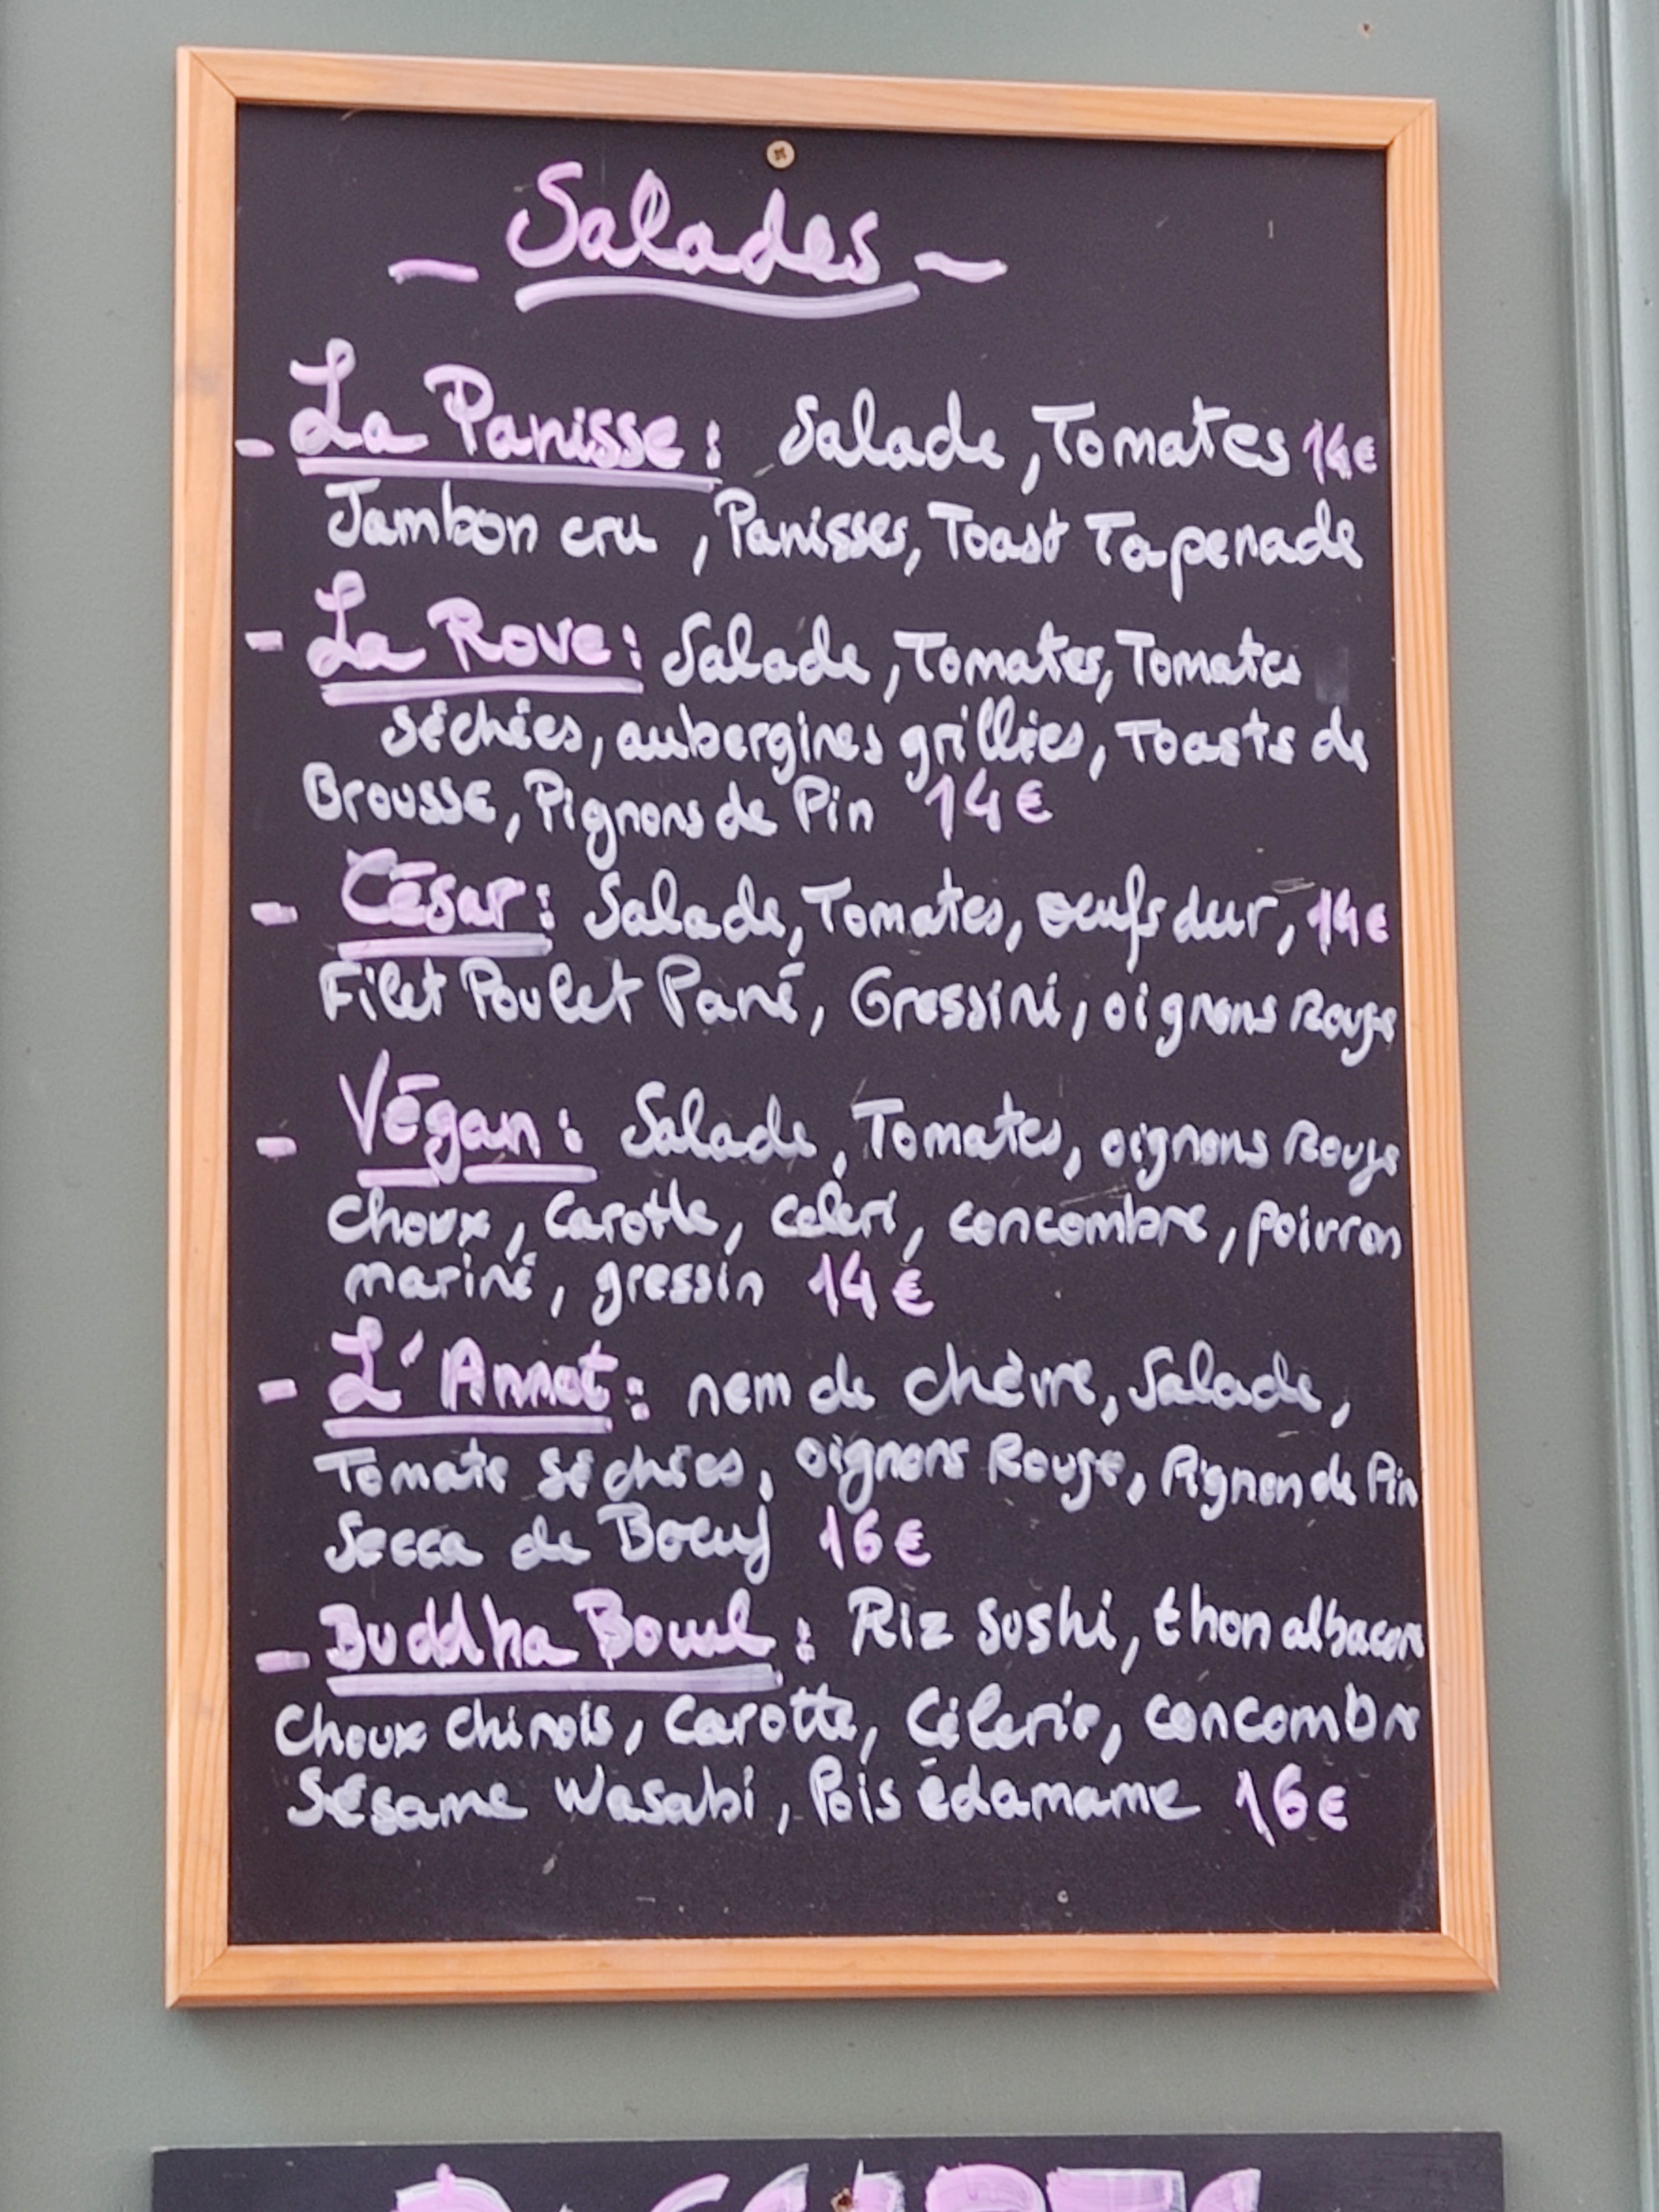 - Salades -
- La Panisse : Salade, Tomates 14€
Jambon cru, Panisses, Toast Tapenade
- La Rove : Salade, Tomates, Tomates
séchées, aubergines grillées, Toasts de
Brousse, Pignons de Pin 14€
- César : Salade, Tomates, oeufs dur, 14€
Filet Poulet Pané, Gressini, oignons Rouge
- Végan : Salade, Tomates, oignons Rouge
choux, Carotte, celeri, concombre, poivron
mariné, gressin 14€
- L'Annot : nem de chèvre, Salade,
Tomate séchées, oignons Rouge, Pignon de Pin
Secca de Boeuf 16€
- Buddha Bowl : Riz sushi, thon albacore
Choux chinois, Carotte, Céleri, concombre
Sésame Wasabi, Pois édamame 16€